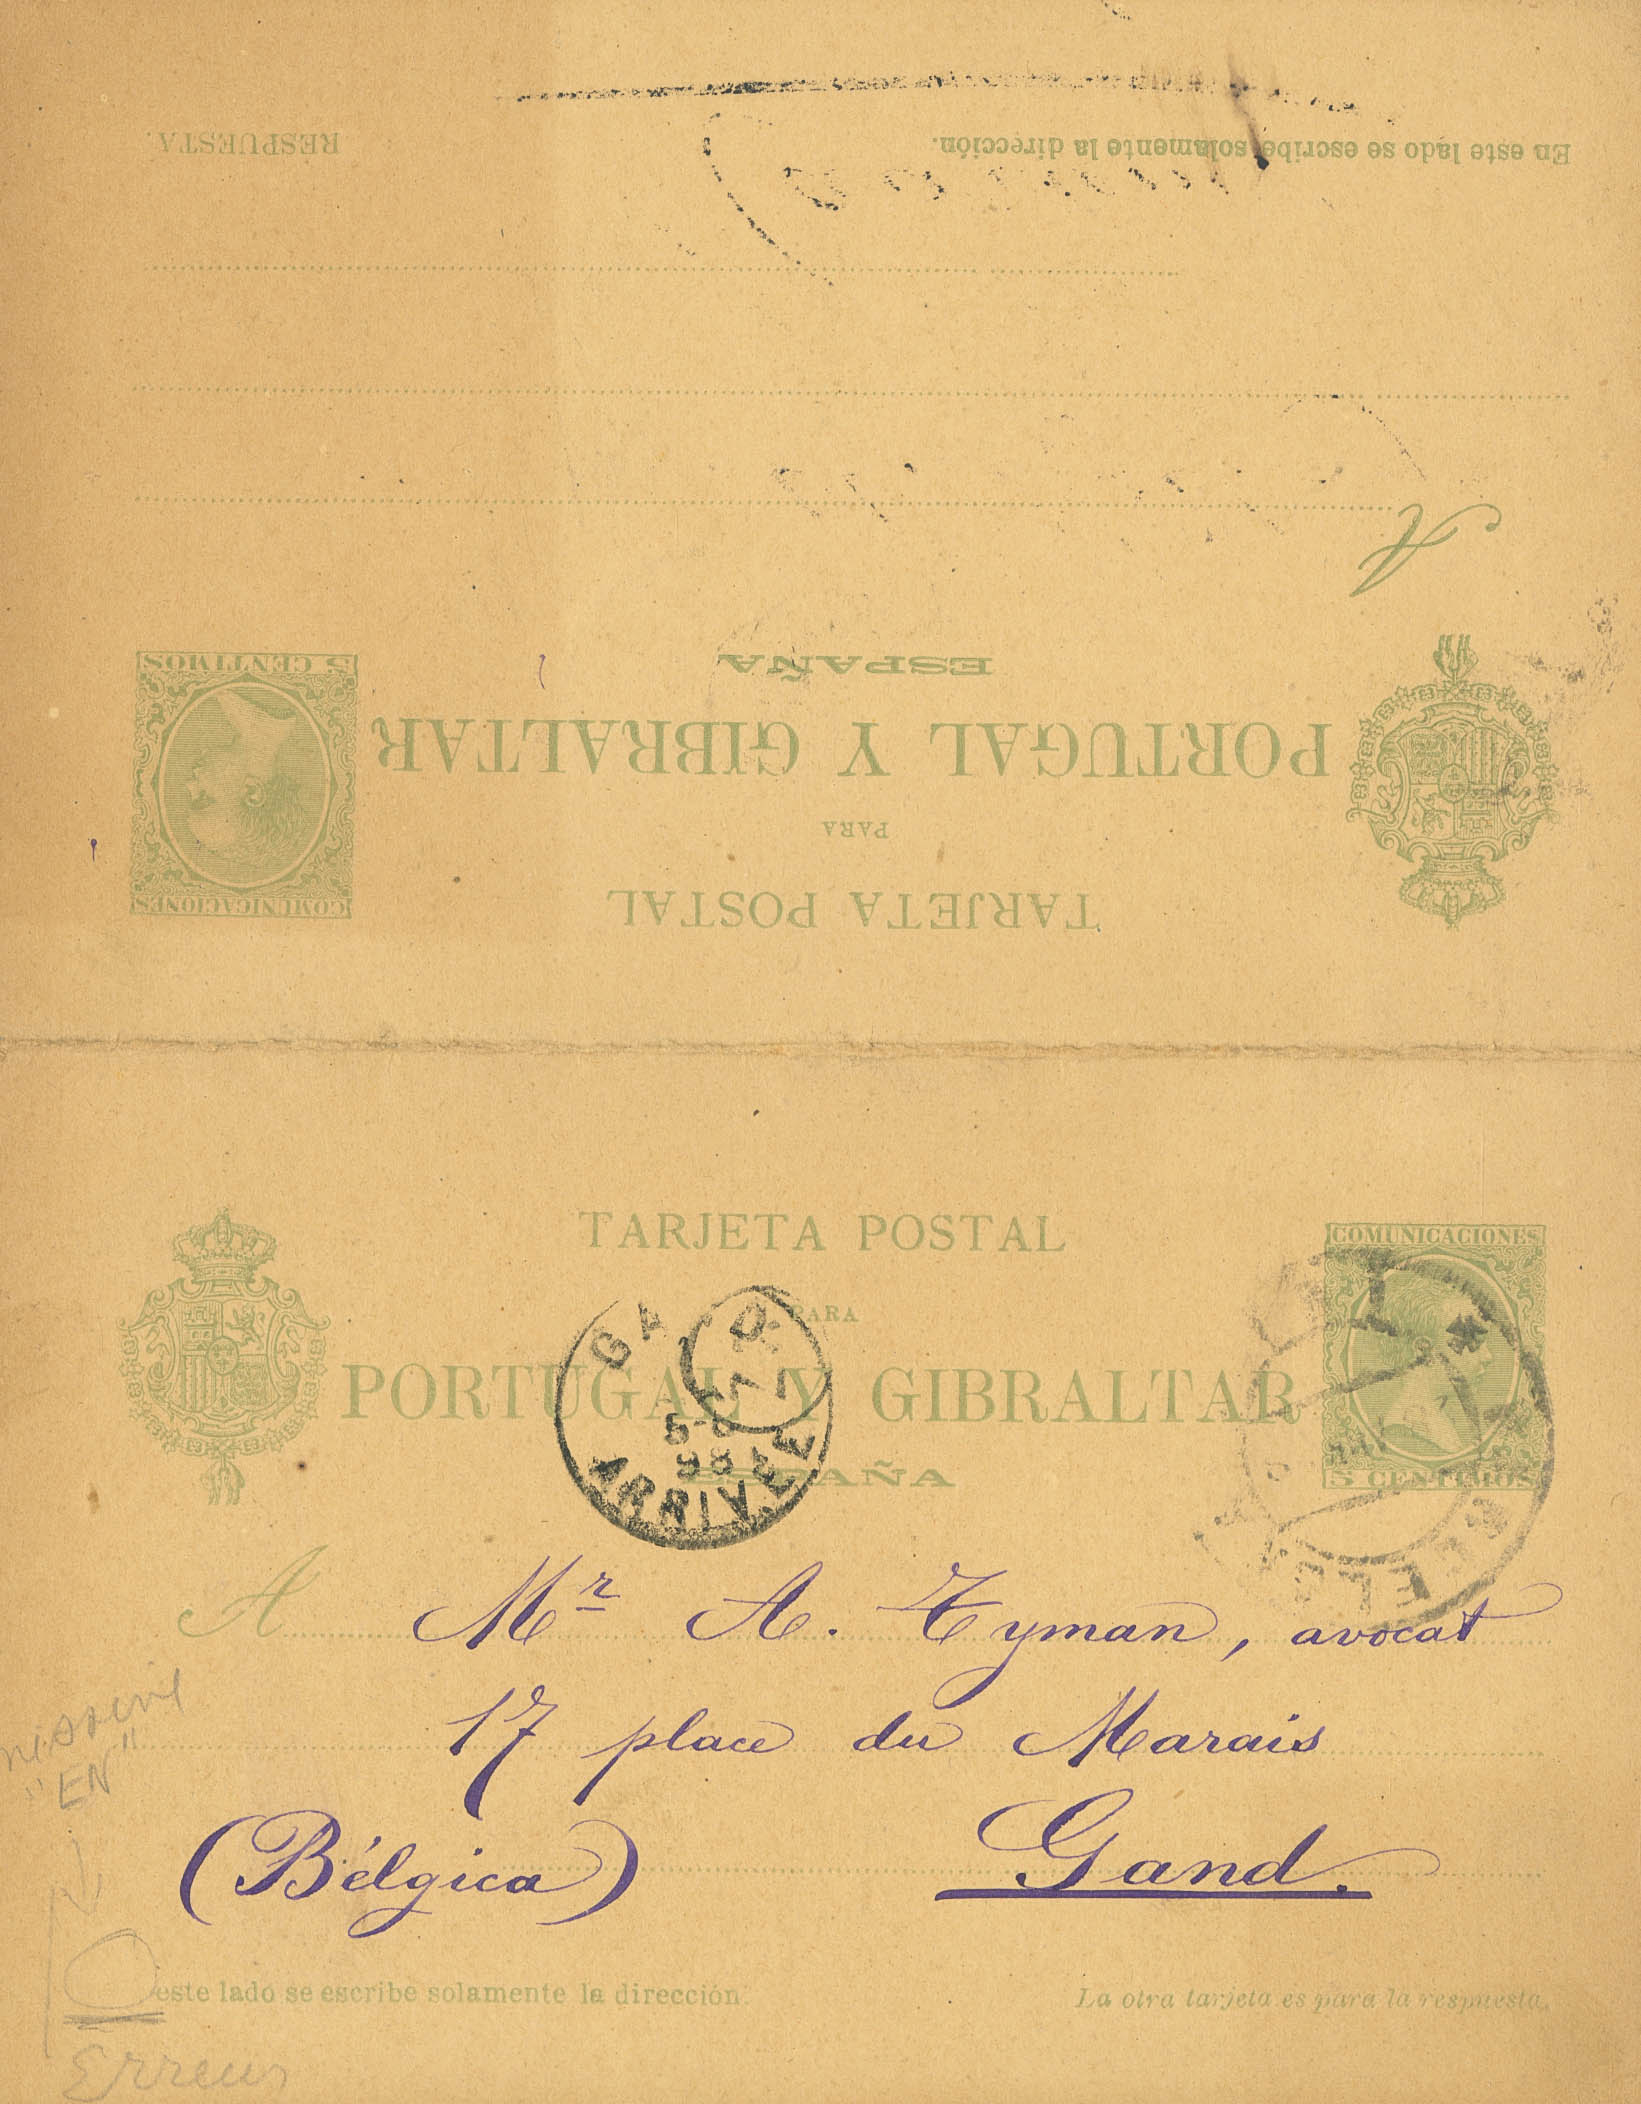 RESPUESTA.
En este lado se escribe solamente la dirección.
A
5 CENTIMOS
ESPAÑA
PORTUGAL Y GIBRALTAR
PARA
TARJETA POSTAL
COMUNICACIONES
TARJETA POSTAL
COMUNICACIONES
PARA
PORTUGAL Y GIBRALTAR
ESPAÑA
5 CENTIMOS
GA D
17
5-6
98
ARRIVÉE
A Mr A. Tyman, avocat
17 place du Marais
"EN"
(Bélgica) Gand.
este lado se escribe solamente la dirección.
La otra tarjeta es para la respuesta.
Erreur